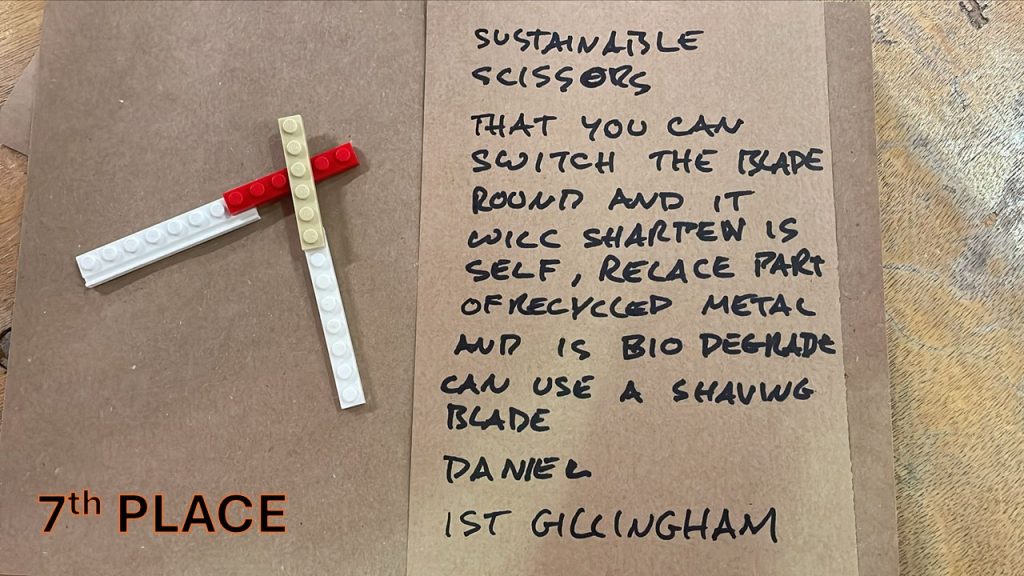 SUSTAINABLE
SCISSORS
THAT YOU CAN
SWITCH THE BLADE
ROUND AND IT
WILL SHARPEN IS
SELF, RELACE PART
OF RECYCLED METAL
AND IS BIO DEGRADE
CAN USE A SHAVING
BLADE
DANIEL
1ST GILLINGHAM
7th PLACE